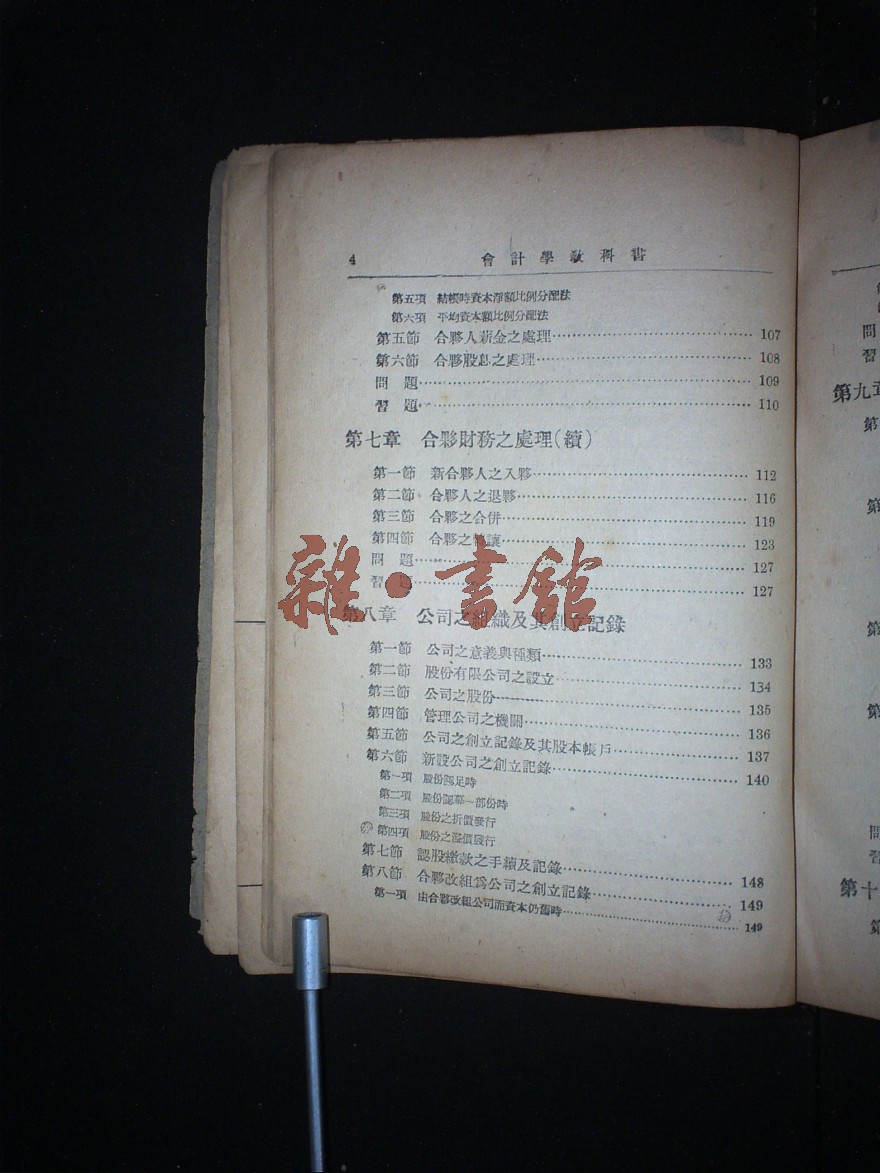 4 會計學教科書
第五項 結帳時資本淨額比例分配法
第六項 平均資本額比例分配法
第五節 合夥人薪金之處理 107
第六節 合夥股息之處理 108
問題 109
習題 110
第七章 合夥財務之處理(續)
第一節 新合夥人之入夥 112
第二節 合夥人之退夥 116
第三節 合夥之合併 119
第四節 合夥之 讓 123
問題 127
習題 127
雜·書館
第八章 公司之組織及其創立記錄
第一節 公司之意義與種類 133
第二節 股份有限公司之設立 134
第三節 公司之股份 135
第四節 管理公司之機關 136
第五節 公司之創立記錄及其股本帳戶 137
第六節 新設公司之創立記錄 140
第一項 股份認足時
第二項 股份認募一部份時
第三項 股份之折價發行
第四項 股份之溢價發行
第七節 認股繳款之手續及記錄 148
第八節 合夥改組爲公司之創立記錄 149
第一項 由合夥改組公司而資本仍舊時 149
問
習
第九章
第
第
第
第
問
習
第十
第